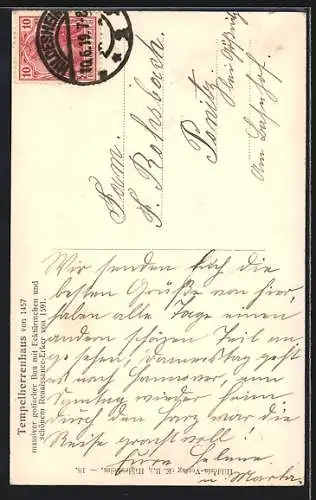 10 10
HILDESHEIM
10.6.19.7-8
Fam.
F. Rohrbach.
Ponitz
bei Gößnitz
Am Bahnhof.
Tempelherrenhaus von 1457
massiver gotischer Bau mit Ecktürmchen und
schönem Renaissance-Erker von 1591.
Wir senden Euch die
besten Grüße von hier,
haben alle Tage einen
andern schönen Teil an
gesehen, Donnerstag geht
es nach Hannover, am
Sonntag wieder heim
durch den Harz war die
Reise pracht voll!
Eure Helene
u. Marta.
Hildesia-Verlag Hildesheim. — 18.